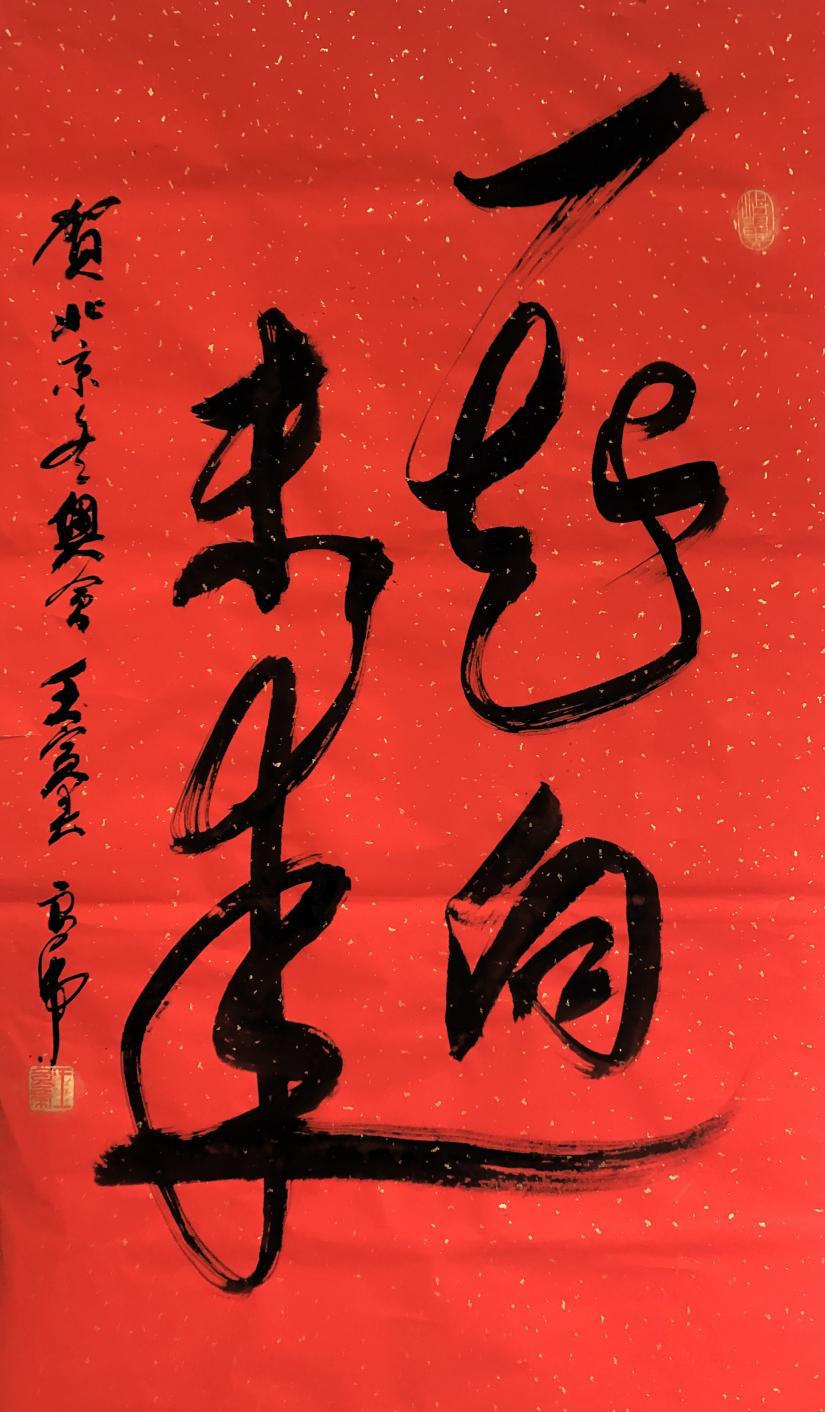 一起向
未来
賀北京冬奥會 壬寅春